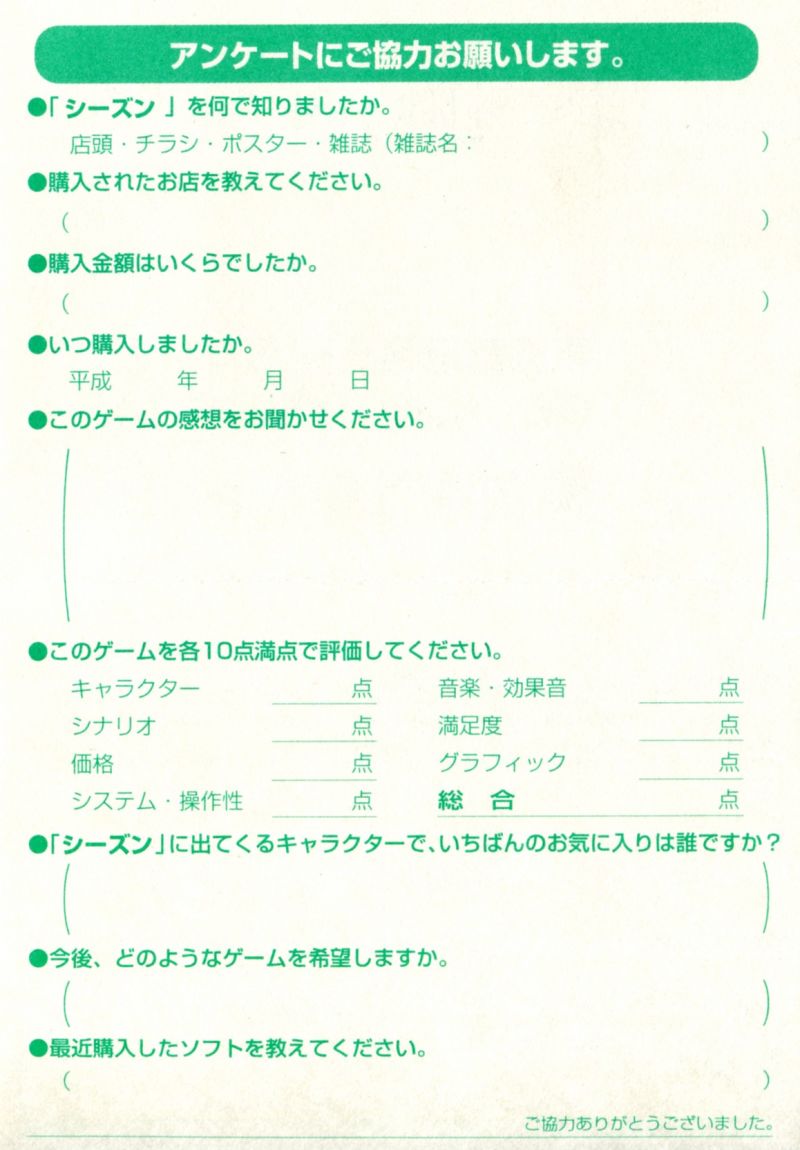 アンケートにご協力お願いします。
●「シーズン」を何で知りましたか。
店頭・チラシ・ポスター・雑誌（雑誌名：　　　）
●購入されたお店を教えてください。
（　　　）
●購入金額はいくらでしたか。
（　　　）
●いつ購入しましたか。
平成　　年　　月　　日
●このゲームの感想をお聞かせください。
（　　　）
●このゲームを各10点満点で評価してください。
キャラクター　　点　　音楽・効果音　　点
シナリオ　　点　　満足度　　点
価格　　点　　グラフィック　　点
システム・操作性　　点　　総　合　　点
●「シーズン」に出てくるキャラクターで、いちばんのお気に入りは誰ですか？
（　　　）
●今後、どのようなゲームを希望しますか。
（　　　）
●最近購入したソフトを教えてください。
（　　　）
ご協力ありがとうございました。